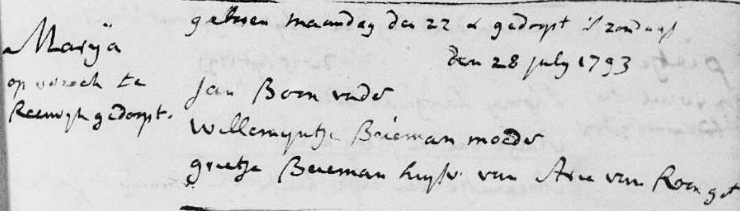 Marija
op versoek te
Reeuwijk gedoopt.
geboren maandag den 22 & gedoopt 's zondags
den 28 july 1793
Jan Boon vader
Willemyntje Beieman moeder
grietje Beieman huysv van Arie van Roon get